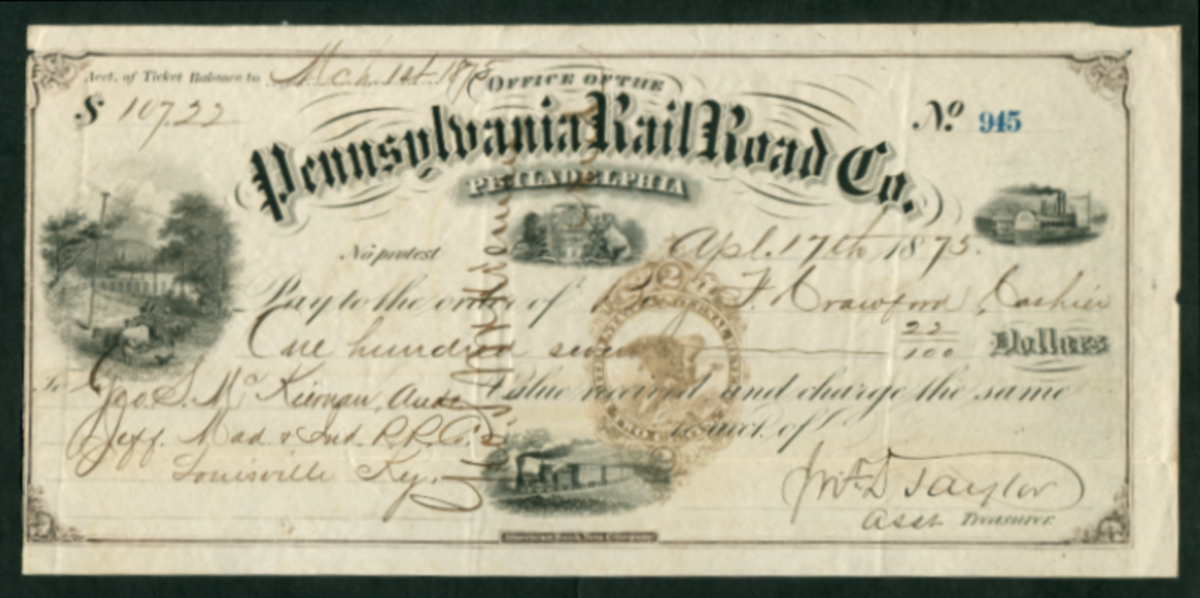 Acct. of Ticket Balance to Mch 1st 1875
$ 107.22
OFFICE OF THE
Pennsylvania Rail Road Co.
No 945
PHILADELPHIA
No protest
Apl. 17th 1875.
Pay to the order of F. Crawford, Cashier
One hundred seven 22/100 Dollars
To Geo. S. McKiernan, Aud.
Value received and charge the same
Jeff. Mad & Ind R.R. Co.
to acct. of
Louisville Ky.
Taylor
Asst Treasurer.
American Bank Note Company